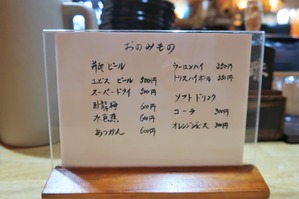 おのみもの
瓶ビール
ヱビス ビール 500円
スーパードライ 500円
600円
水色燕 600円
あつかん 600円
ウーロンハイ 350円
トリスハイボール 350円
ソフトドリンク
コーラ 300円
オレンジジュース 300円